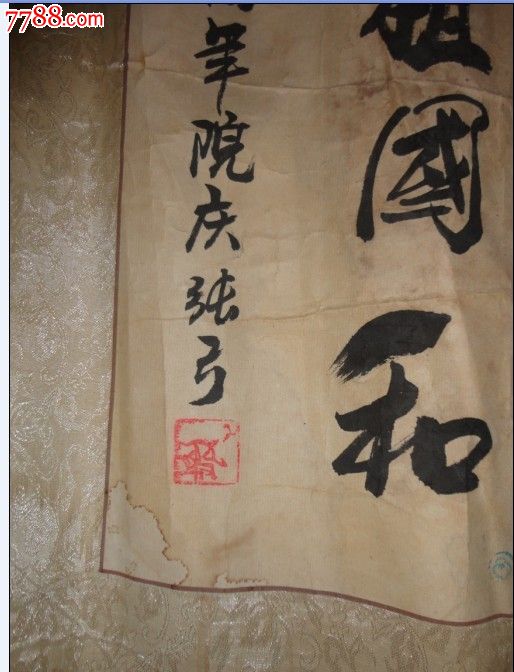 7788.com
祖國和
年院庆张弓